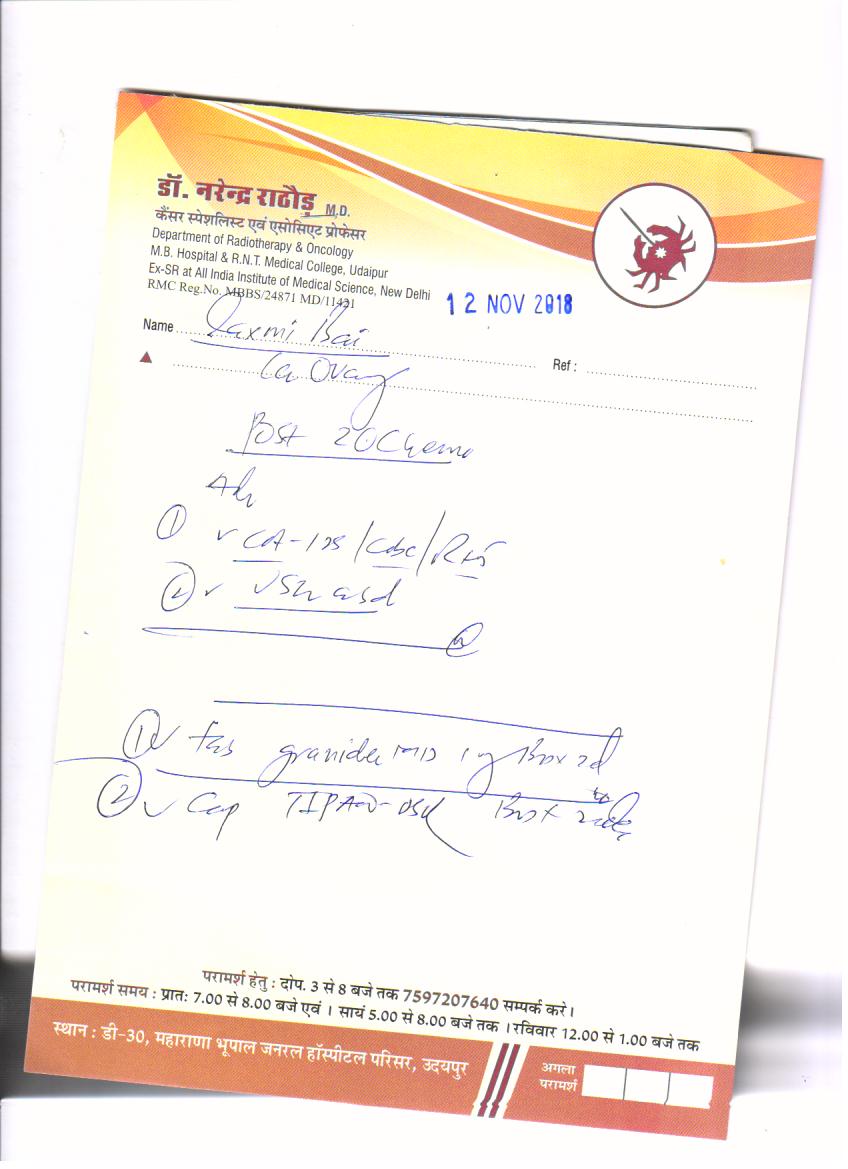 डॉ. नरेन्द्र राठौड़ M.D.
कैंसर स्पेशलिस्ट एवं एसोसिएट प्रोफेसर
Department of Radiotherapy & Oncology
M.B. Hospital & R.N.T. Medical College, Udaipur
Ex-SR at All India Institute of Medical Science, New Delhi
RMC Reg.No. MBBS/24871 MD/11421
12 NOV 2018
Name Laxmi Bai
Ref :
Ca Ovary
Post 2 Chemo
Adv
① CA-125 / CBC / RFT
② USG
① Tab 1mg
② Cap
परामर्श हेतु : दोप. 3 से 8 बजे तक 7597207640 सम्पर्क करे।
परामर्श समय : प्रातः 7.00 से 8.00 बजे एवं । सायं 5.00 से 8.00 बजे तक । रविवार 12.00 से 1.00 बजे तक
स्थान : डी-30, महाराणा भूपाल जनरल हॉस्पीटल परिसर, उदयपुर
अगला
परामर्श